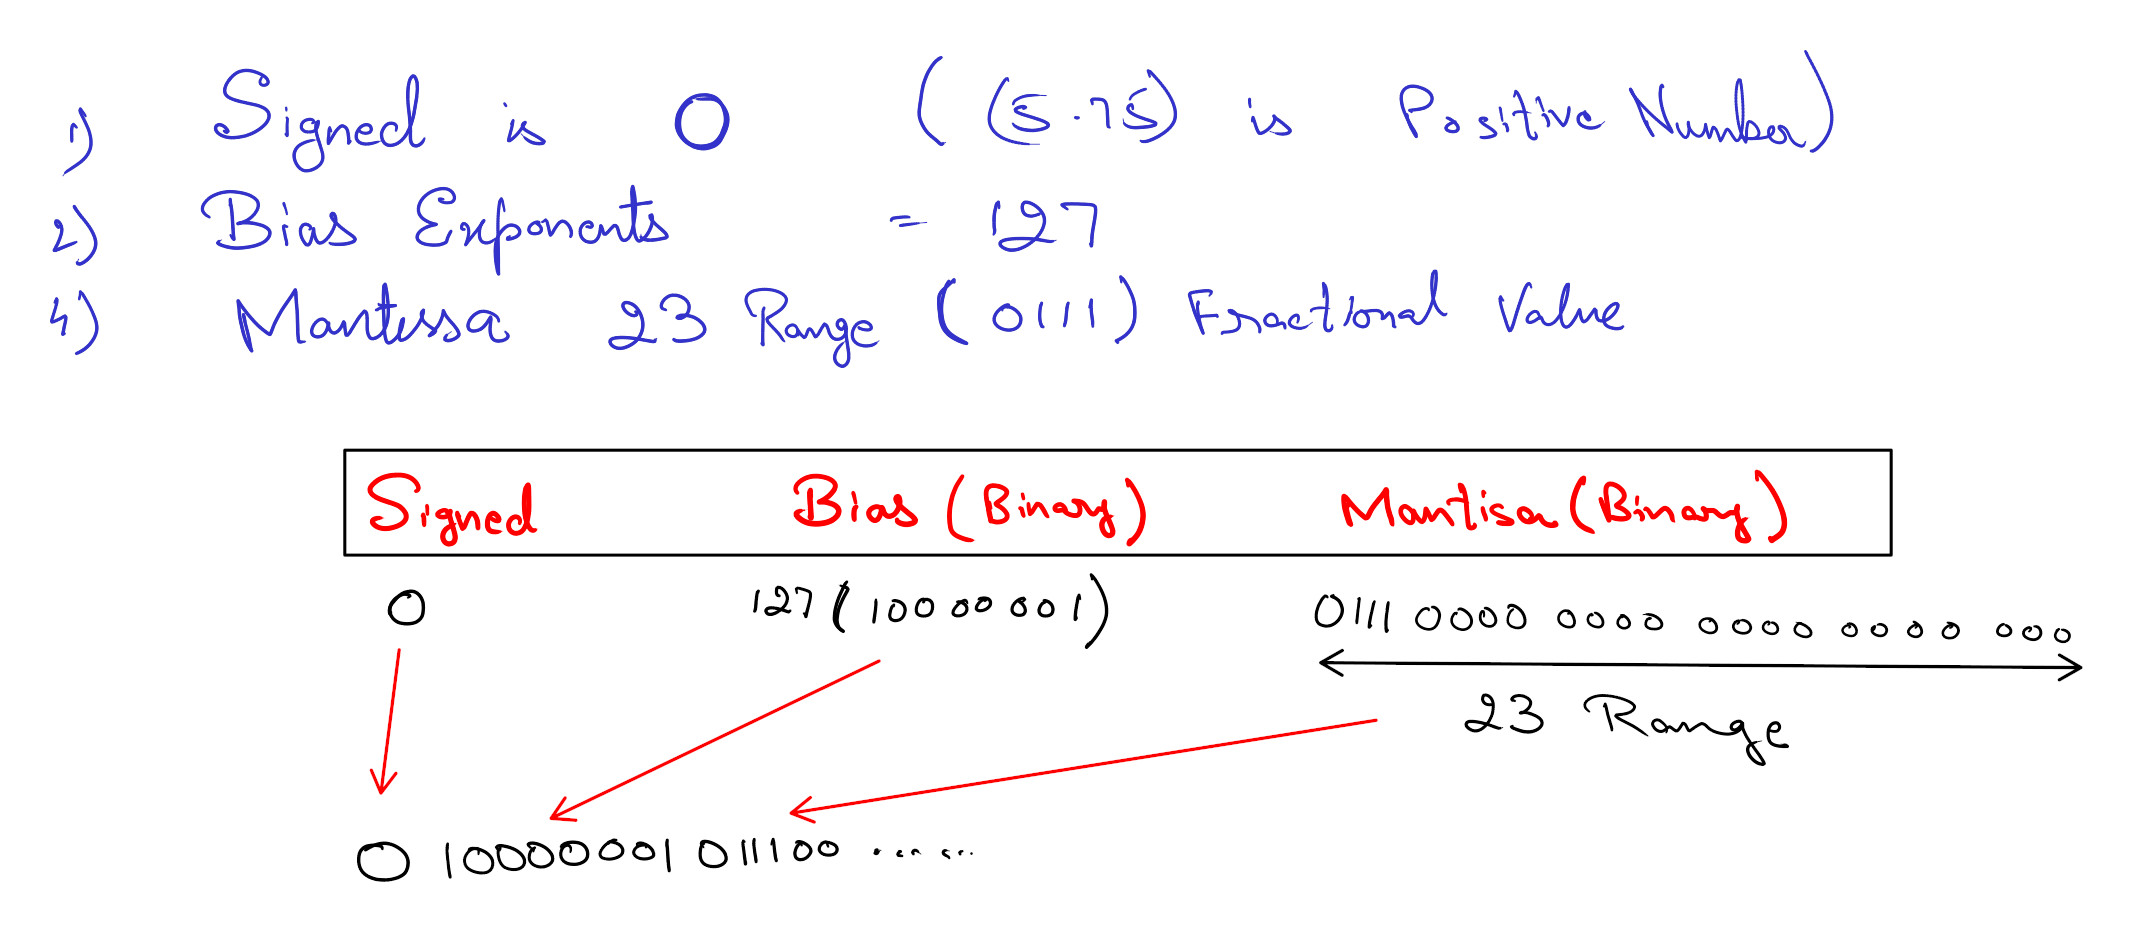 1) Signed is 0 ( (5.75) is Positive Number)
2) Bias Exponents = 127
4) Mantissa 23 Range (0111) Fractional Value
Signed Bias (Binary) Mantisa (Binary)
0 127 (10000001) 0111 0000 0000 0000 0000 000
23 Range
0 10000001 011100 ......